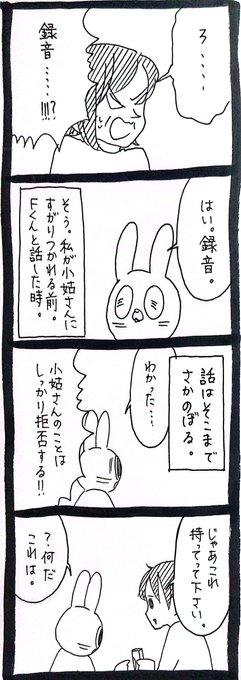 ろ・・・・
録音・・・・!!!?
はい。録音。
そう。私が小姑さんに
すがりつかれる前。
Fくんと話した時。
話はそこまで
さかのぼる。
わかった・・・
小姑さんのことは
しっかり拒否する!!
じゃあこれ
持ってって下さい。
?何だ
これは。